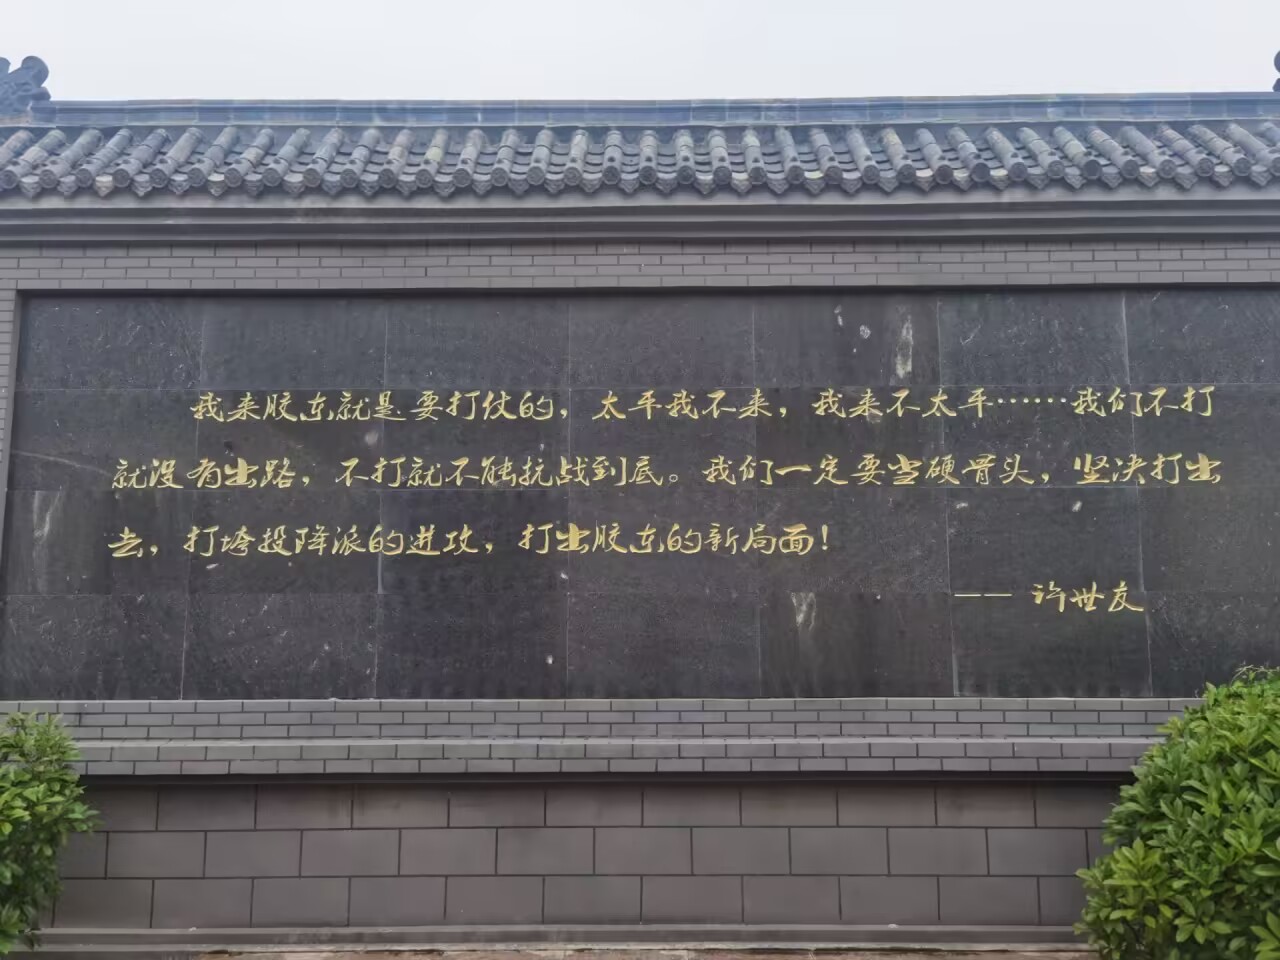 我来胶东就是要打仗的，太平我不来，我来不太平……我们不打
就没有出路，不打就不能抗战到底。我们一定要当硬骨头，坚决打出
去，打垮投降派的进攻，打出胶东的新局面！
—— 许世友